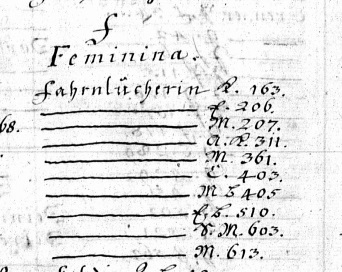 f
Feminina.
Fahrnlücherin K. 163.
f. 206.
68. M. 207.
A. K. 311.
M. 361.
C. 403.
M 405
510.
S. M. 603.
M. 613.